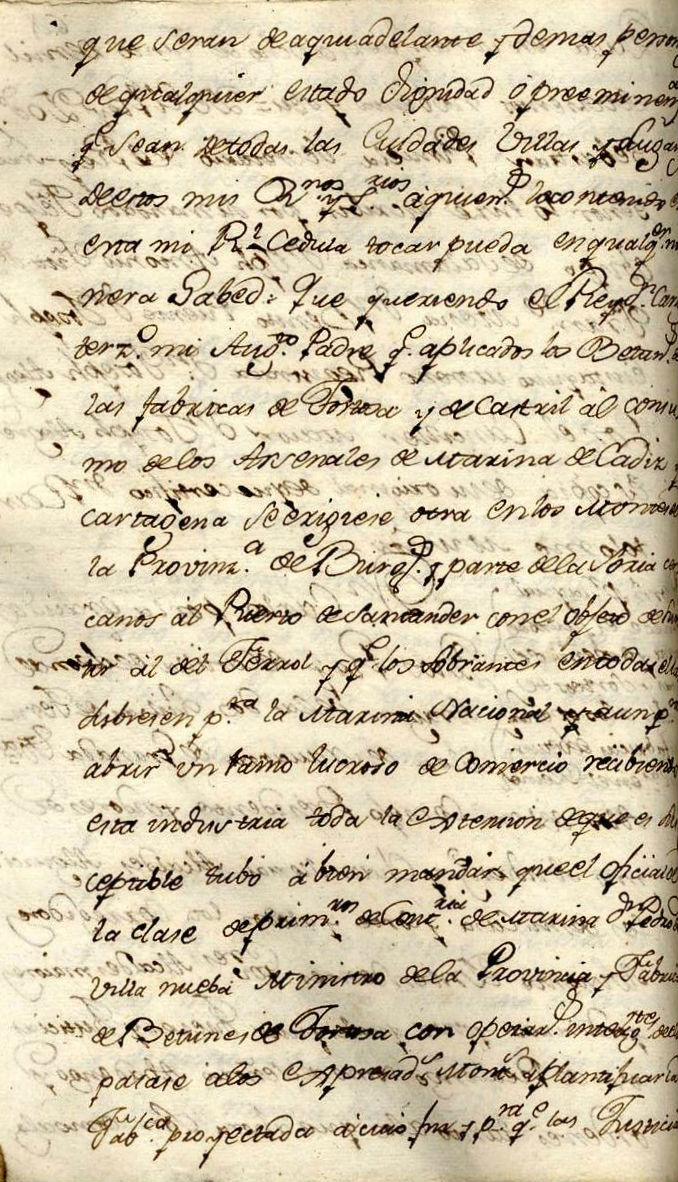 que seran de aqui adelante y demas person
de qualquier estado dignidad ò preeminen
q.e sean de todas las Ciudades Villas y Lugar
de estos mis R.nos y S.rios a quien lo contenido en
esta mi R.l Cedula tocar pueda en qualq.r ma
nera Sabed: Que queriendo el Rey d.n Car
terz.o mi Aug.to Padre q.e aplicados los Betun.s de
las fabricas de Tortosa y de Castril al consu
mo de los Arsenales de Marina de Cadiz y
Cartagena se erigiese otra en los Montes de
la Provinz.a de Burg.s y parte de la Soria cer
canos al Puerto de Santander con el objeto de sur
tir al del Ferrol y q.e los sobrantes en todas ellas
sirbiesen p.ra la Marina Nacional y aun p.a
abrir un ramo lucroso de Comercio recibiendo
esta industria toda la extension de que es sus
ceptible tubo a bien mandar que el oficial de
la clase de prim.ros de Cont.ria de Marina d.n Pedro de
Villa nueba Ministro de la Provincia y Fabrica
de Betunes de Tortosa con operar.s de
pasase a los Expresad.s Mont.s a plantificar la
Fab.ca proyectada a cuio fin y p.ra q.e las Justicia